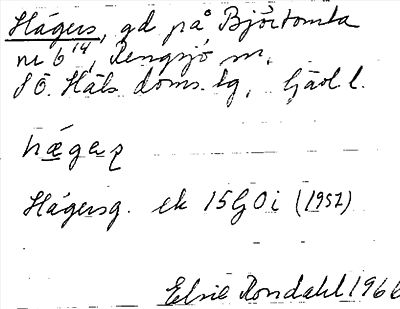 Hågers, gd på Björtomta
nr 6¹⁴, Rengsjö sn,
S Ö. Häls. doms. lg, Gävl l.
hægaʒ
Hågersg. ek 15G0i (1957)
Elsie Rondahl 1966